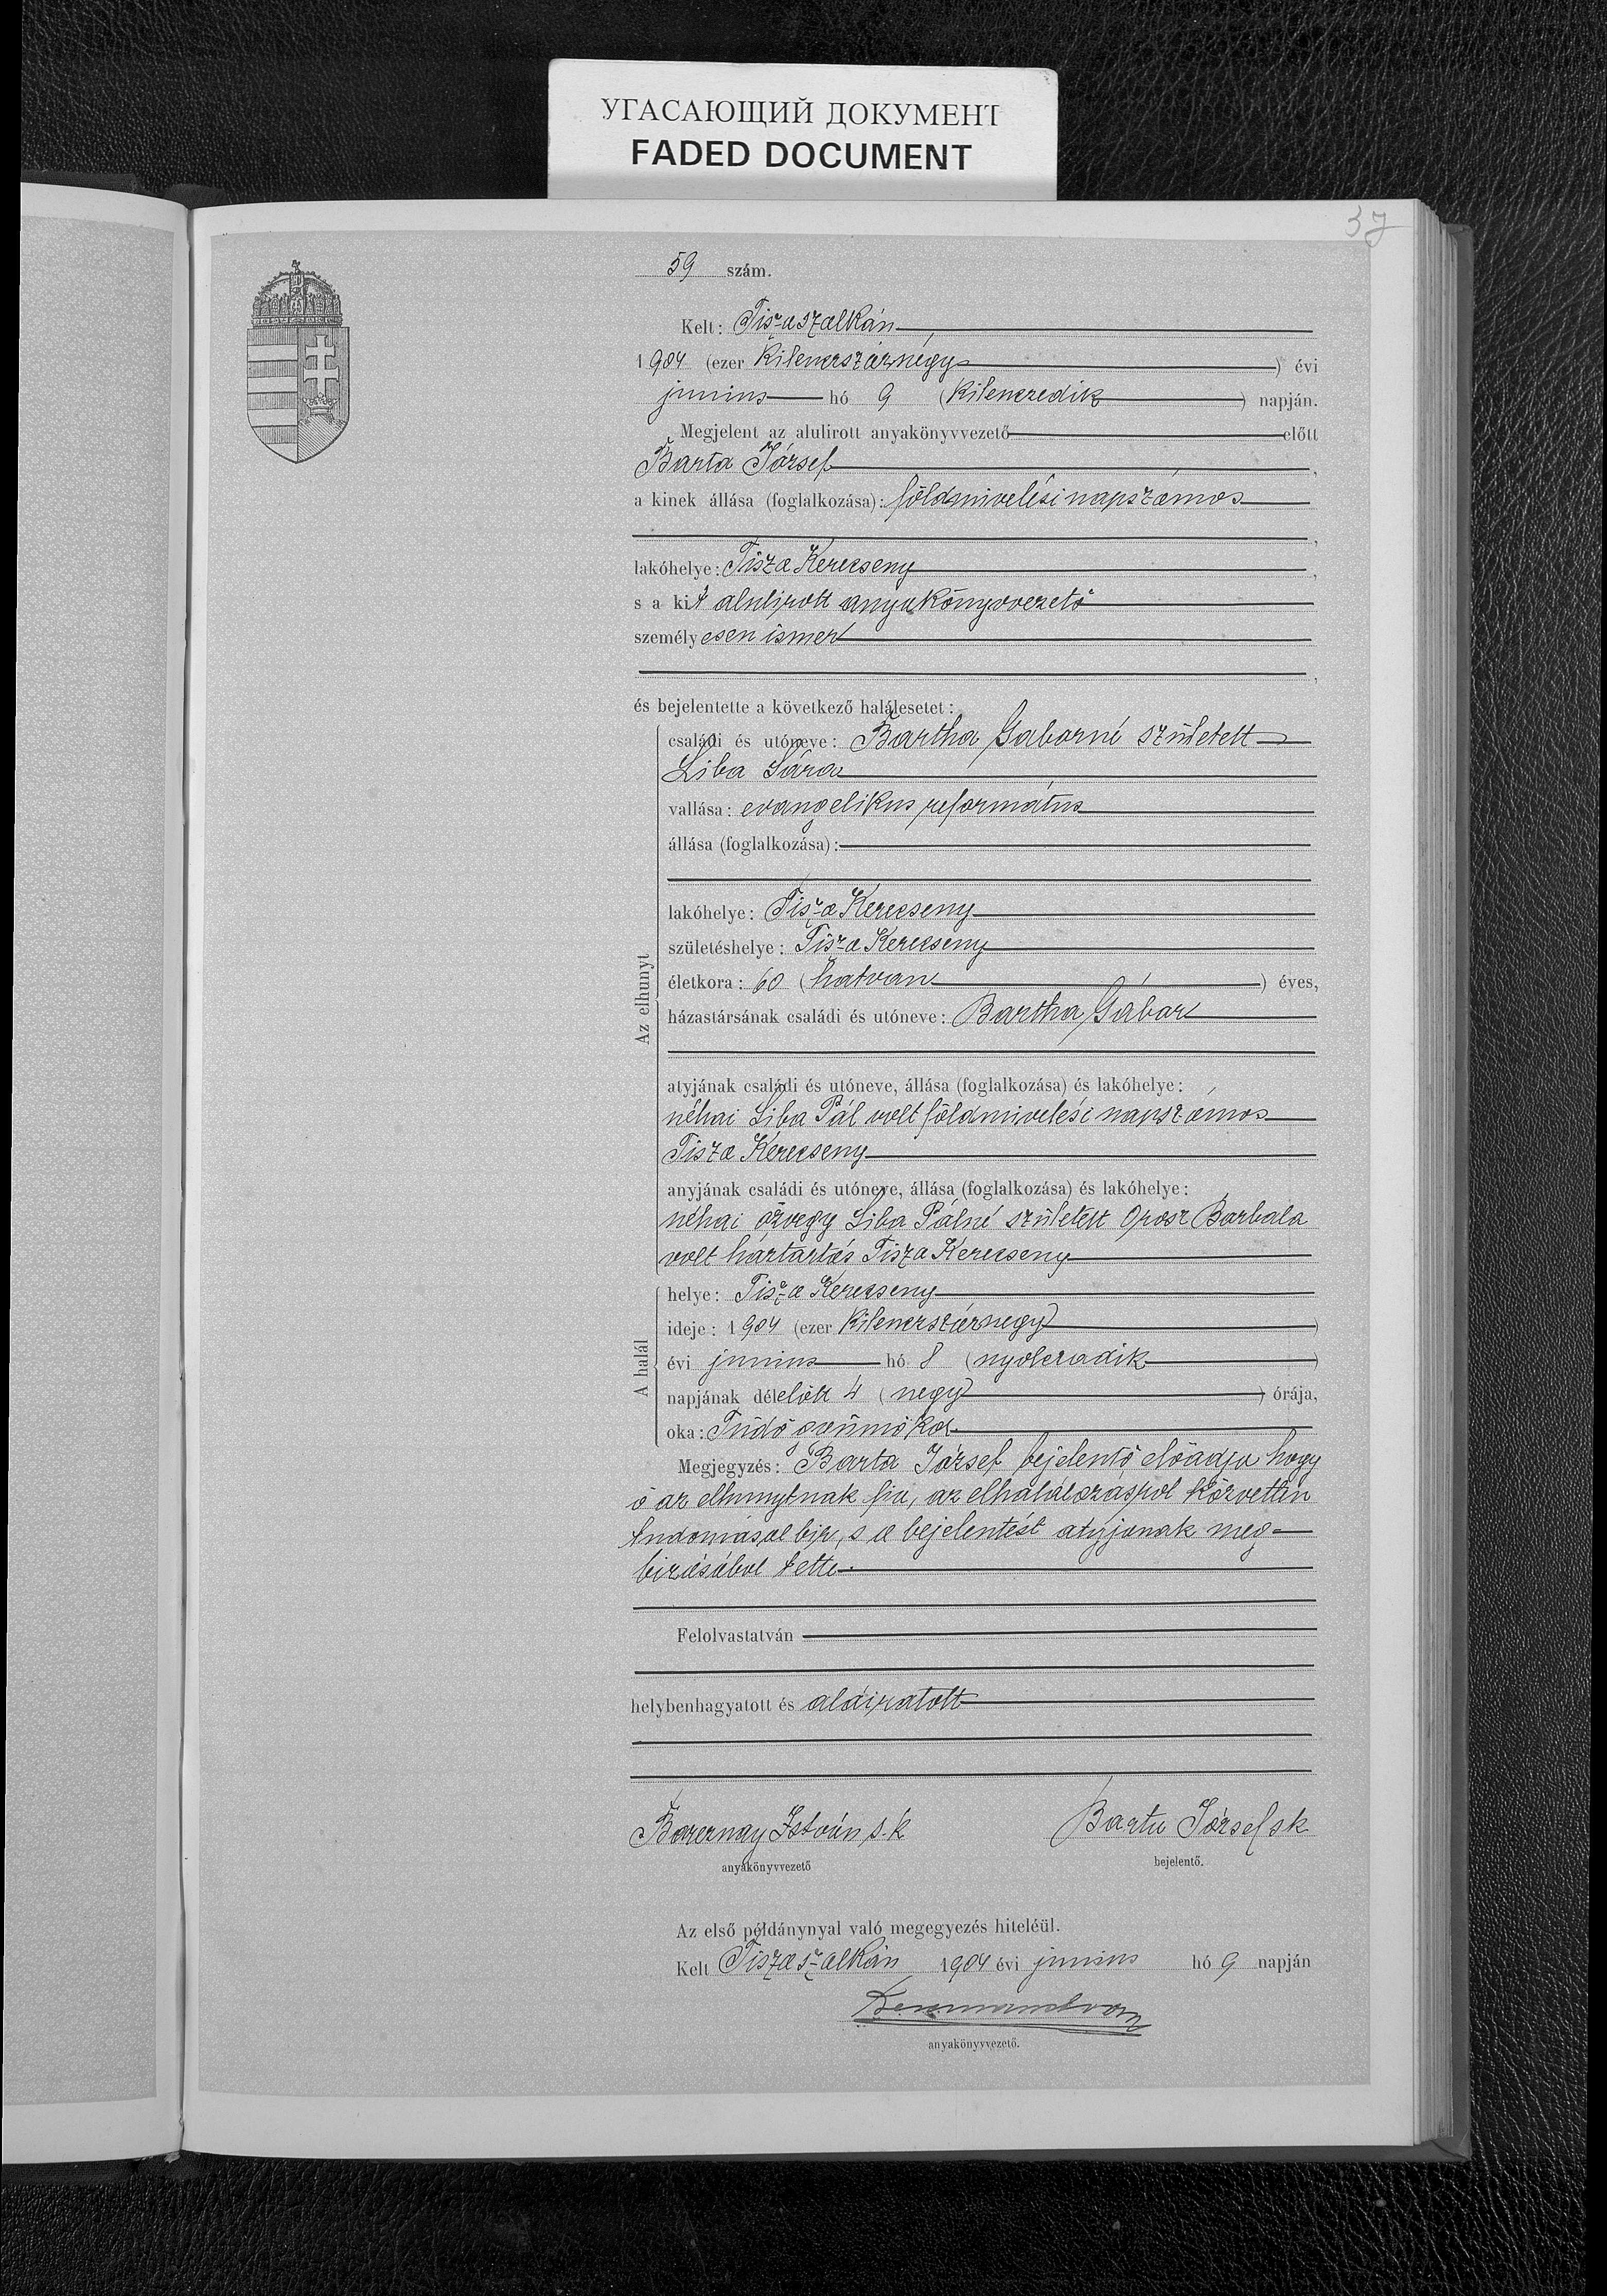 УГАСАЮЩИЙ ДОКУМЕНТ
FADED DOCUMENT
37
59 szám.
Kelt: Tiszaszalkán
1904 (ezer kilenczszáznégy) évi
junius hó 9 (kilenczedik) napján.
Megjelent az alulirott anyakönyvvezető előtt
Barta József,
a kinek állása (foglalkozása): földmivelési napszámos
,
lakóhelye: Tisza Kerecseny,
s a kit alulirott anyakönyvvezető
személyesen ismer
,
és bejelentette a következő halálesetet:
Az elhunyt
családi és utóneve: Bartha Gáborné született
Liba Sára
vallása: evangelikus református
állása (foglalkozása):
lakóhelye: Tisza Kerecseny
születéshelye: Tisza Kerecseny
életkora: 60 (hatvan) éves,
házastársának családi és utóneve: Bartha Gábor
atyjának családi és utóneve, állása (foglalkozása) és lakóhelye:
néhai Liba Pál volt földmivelési napszámos
Tisza Kerecseny
anyjának családi és utóneve, állása (foglalkozása) és lakóhelye:
néhai özvegy Liba Pálné született Orosz Borbala
volt háztartás Tisza Kerecseny
A halál
helye: Tisza Kerecseny
ideje: 1904 (ezer kilenczszáznegy)
évi junius hó 8 (nyolczadik)
napjának délelőtt 4 (negy) órája,
oka: Tüdő gümőkor
Megjegyzés: Barta József bejelentő előadja hogy
ő az elhunytnak fia, az elhalálozásról közvetlen
tudomással bir, s a bejelentést atyjanak meg-
bizásából tette.
Felolvastatván
helybenhagyatott és aláiratott
István s.k.
anyakönyvvezető
Barta József sk
bejelentő.
Az első példánynyal való megegyezés hiteléül.
Kelt Tiszaszalkán 1904 évi junius hó 9 napján
anyakönyvvezető.